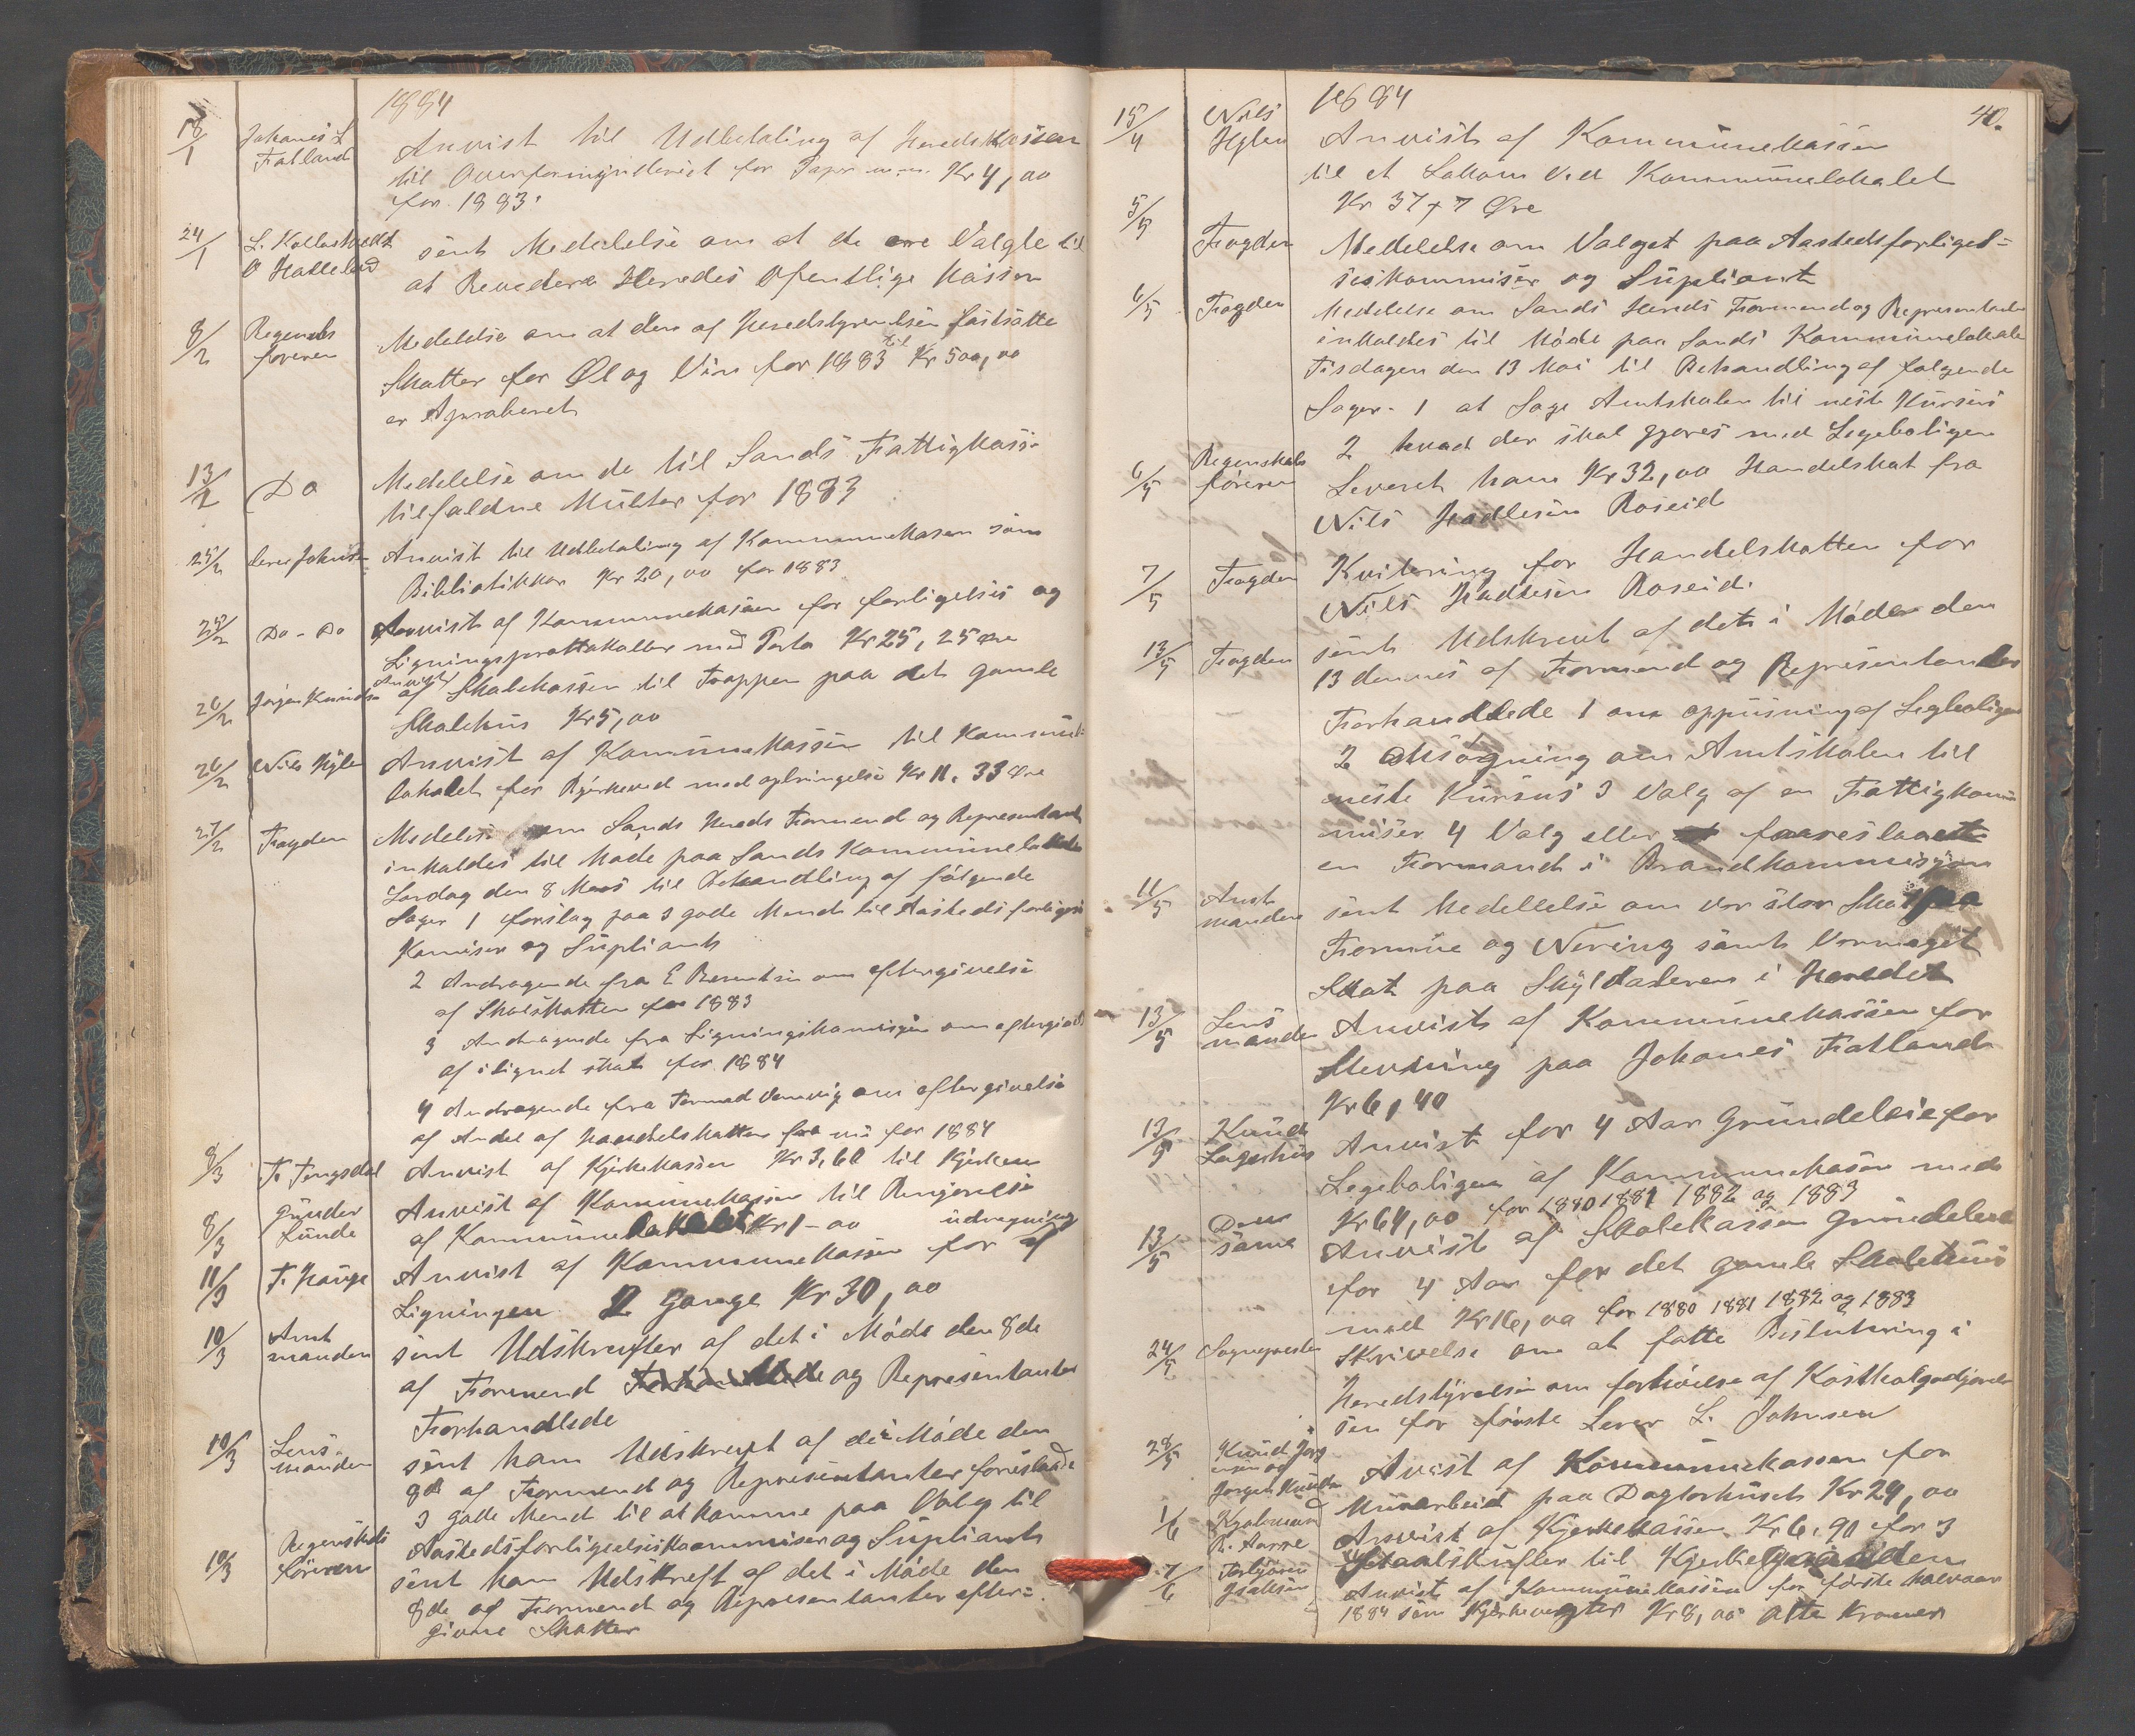 1884
18/1 Johanes L Fatland Anvist til Udbetaling af Heredskassen
til Overformynderiet for Papir m.m. Kr 4,00
for 1883.
24/1 L. Kollastvedt O Halleland sent Medelelse om at de ere Valgte til
at Revidere Heredes Ofentlige Kasser
8/2 Regenskbs foreren Medelelse om at den af Heredstyrelsen fastsatte
Skatter for Øl og Vin for 1883 til Kr 500,00
er Aproberet
13/2 Do Medelelse om de til Sands Fattigkasse
tilfaldne Mulkter for 1883
25/2 lerer Johnsen Anvist til Udbetaling af Kommunekasen som
Bibliotikkar Kr 20,00 for 1883
25/2 Do - Do Anvist af Kommunekassen for forligelsis og
Ligningsprottokoller med Porto Kr 25,25 øre
26/2 Jørgen Knudsen Anvist af Skolekassen til Trappen paa det gamle
Skolehus Kr 5,00
26/2 Nils Hylen Anvist af Kommunekassen til Kommune
lokalet for Bjørkeved med opbringelse Kr 11.33 øre
27/2 Fogden Medelelse om Sands Hereds Formend og Representanter
inkaldes til Møde paa Sands Kommunelokale
Lørdag den 8 Mars til Behandling af følgende
Sager 1 forslag paa 3 gode Mend til Aasteds forligelses
Komiser og Supliant
2 Andragende fra E Berentsen om eftergivelse
af Skolskatten for 1883
3 Andragende fra Ligningskomisjon om eftergivelse
af ilignet skat for 1884
4 Andragende fra Tormod Vanvig om eftergivelse
af Andel af handelskatten fra nu for 1884
8/3 T. Tengsdal Anvist af Kjerkekassen Kr 3,60 til Kjerken
8/3 Gunder Lunde Anvist af Kommunekassen til Rengjørelse
af Kommunelokalet Kr 1-00
11/3 T. Hauge Anvist af Kommunekassen for udregning af
Ligningen 2 Gange Kr 30,00
10/3 Amtmanden sent Udskrefter af det i Møde den 8de
af Formend og Representanter
Forhandlede
10/3 Lensmanden sent ham Udskreft af dei Møde den
8de af Formend og Representanter foreslaade
3 gode Mend til at komme paa Valg til
Aastedsforligelsiskommiser og Supliant
10/3 Regenskabs føreren sent ham Udskreft af det i Møde den
8de af Formend og Representanter efter=
givne Skatter
40.
1884
15/4 Nils Hylen Anvist af Kommunekassen
til et Lokom ved Kommunelokalet
Kr 37+7 Øre
5/5 Fogden Medelelse om Valget paa Aastedsforligel=
seskommiser og Supliant
6/5 Fogden Medelelse om Sands Hereds Formend og Representanter
inkaldes til Møde paa Sands Kommunelokale
Tirsdagen den 13 Mai til Behandling af følgende
Sager. 1 at Søge Amtskolen til neste Kursus
2 hvad der skal gjøres med Legeboligen
6/5 Regenskabs føreren Leveret ham Kr 32,00 Handelskat fra
Nils Hadlesen Roseid
7/5 Fogden Kvitering for Handelskatten for
Nils Hadlesen Roseid.
13/5 Fogden sent Udskreut af dets i Møde den
13 dennes af Formend og Representander
Forhandlede 1 om oppusning af Legboligen
2 Ansøgning om Amtskolen til
neste Kursus 3 Valg af en Fattigkom=
miser 4 Valg eller foreslaaett
en Formand i Brandkommisjon
11/5 Amtmanden sent Medellelse om vor stor Skat paa
Formue og Nering samt Vormaget
Skat paa Skyldaleren i Heredet
13/5 Lensmanden Anvist af Kommunekassen for
Stevning paa Johanes Fatland
Kr 6,40
13/5 Knud Lagehus Anvist for 4 Aar Grundeleie for
Legeboligen af Kommunekasen med
Kr 64,00 for 1880 1881 1882 og 1883
13/5 Den same Anvist af Skolekassen Grundeleie
for 4 Aar for det gamle Skolehus
med Kr 16,00 for 1880 1881 1882 og 1883
24/5 Sognepresten Skrivelse om at fatte Beslutning i
Heredstyrelsen om forhøielse af Kostholgodjørel
sen for første Lerer L. Johnsen
28/5 Knud Jørgensen og Jørgen Knudsen Anvist af Kommunekassen for
Murarbeid paa Doctorhuset Kr 24,00
1/6 Kjolmand R. Aarre Anvist af Kjerkekassen Kr 6.90 for 3
Staalskufler til Kjerkegaarden
7/6 Torbjørn Isaksen Anvist af Kommunekassen for første halvaar
1884 som Kjerkevegter Kr 8,00 otte Kroner